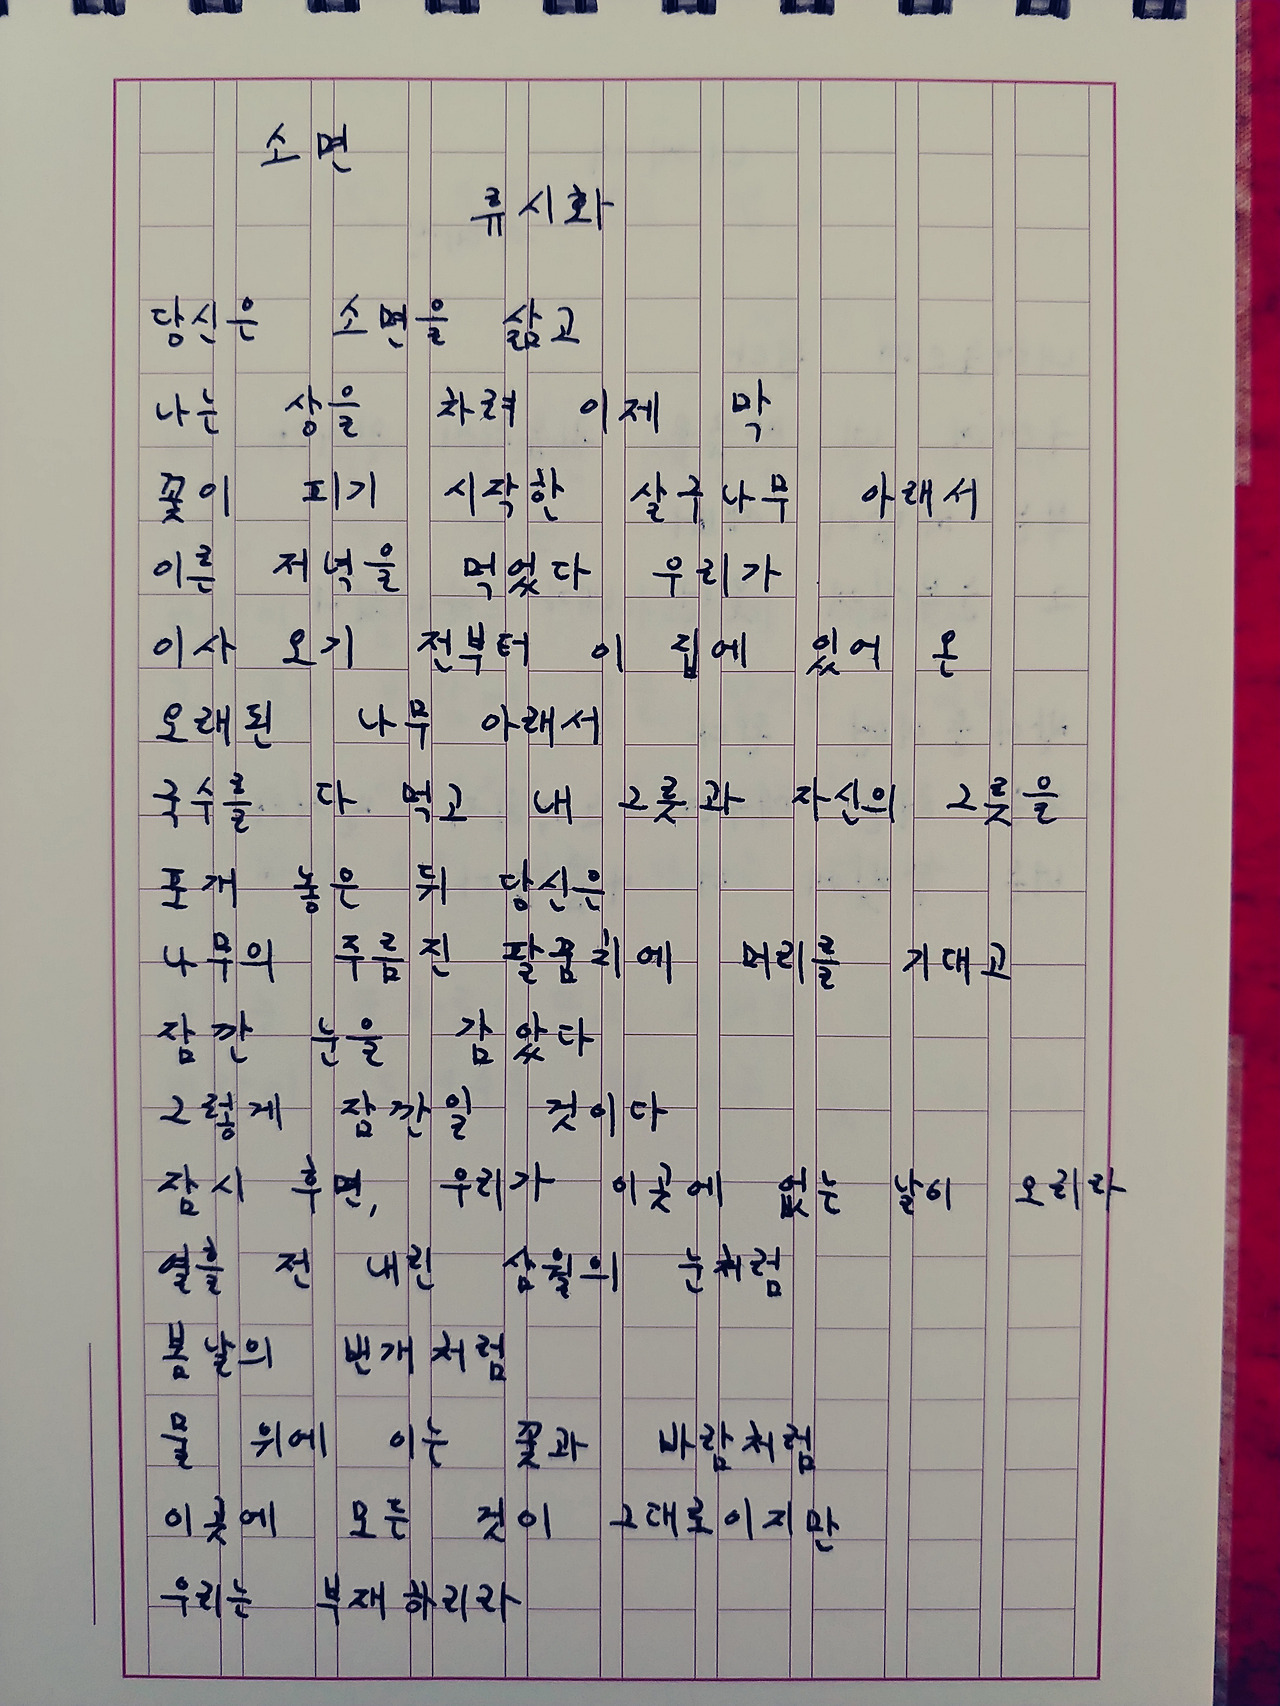 소면
류시화
당신은 소면을 삶고
나는 상을 차려 이제 막
꽃이 피기 시작한 살구나무 아래서
이른 저녁을 먹었다 우리가
이사 오기 전부터 이 집에 있어 온
오래된 나무 아래서
국수를 다 먹고 내 그릇과 자신의 그릇을
포개 놓은 뒤 당신은
나무의 주름진 팔꿈치에 머리를 기대고
잠깐 눈을 감았다
그렇게 잠깐일 것이다
잠시 후면, 우리가 이곳에 없는 날이 오리라
열흘 전 내린 삼월의 눈처럼
봄날의 번개처럼
물 위에 이는 꽃과 바람처럼
이곳에 모든 것이 그대로이지만
우리는 부재하리라